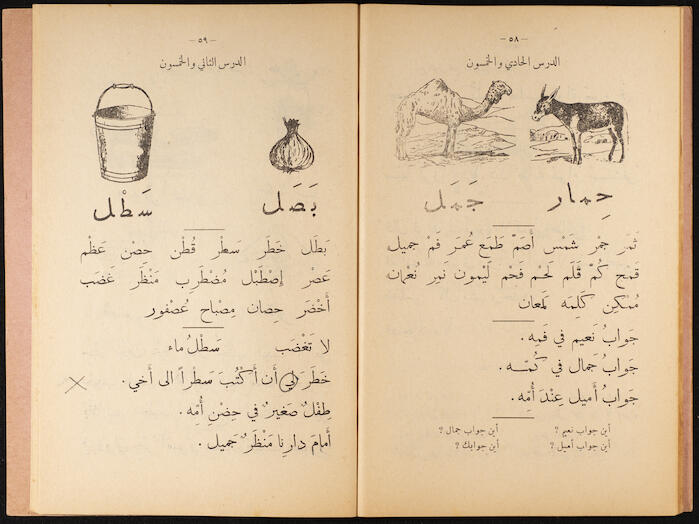 — ٥٨ —
الدرس الحادي والخمسون
حِمار
جَمَل
ثَمَر جَمْر شَمْس أَصَمّ طَمَع عُمَر فَمْ جميل
قَمح كُمّ قَلَم لَحْم فَحْم لَيمون نَمِر نُعْمان
مُمْكِن كَلِمَه لَمعان
جَوابُ نَعيم في فَمِه .
جَوابُ جَمال في كُمِّه .
جَوابُ أَميل عِنْدَ أُمِّه .
أين جواب نعيم ؟
أين جواب جمال ؟
أين جواب أميل ؟
أين جوابك ؟
— ٥٩ —
الدرس الثاني والخمسون
بَصَل
سَطْل
بَطَل خَطَر سَطْر قُطْن حِصْن عَظْم
عَصْر إِصْطَبْل مُضْطَرِب مَنْظَر غَضَب
أَخْضَر حِصان مِصْباح عُصْفور
لا تَغْضَب
سَطْلُ ماء
خَطَرَ لي أَن أَكْتُبَ سَطْراً الى أَخي .
طِفْلٌ صَغيرٌ في حِضْنِ أُمِّه .
أَمامَ دارِنا مَنْظَرٌ جَميل .